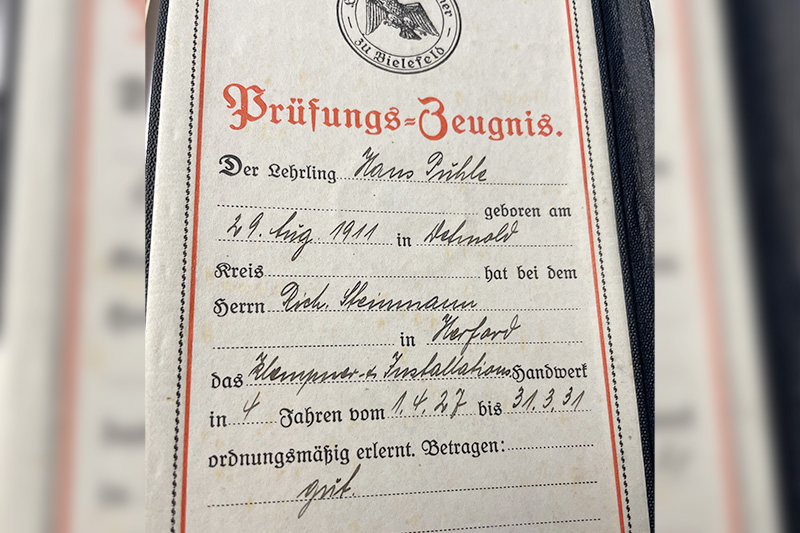 zu Bielefeld
Prüfungs=Zeugnis.
Der Lehrling Hans Pühle
geboren am
29. Aug. 1911 in Detmold
Kreis hat bei dem
Herrn Rich. Steinmann
in Herford
das Klempner- & Installations Handwerk
in 4 Jahren vom 1.4.27 bis 31.3.31
ordnungsmäßig erlernt. Betragen:
gut.